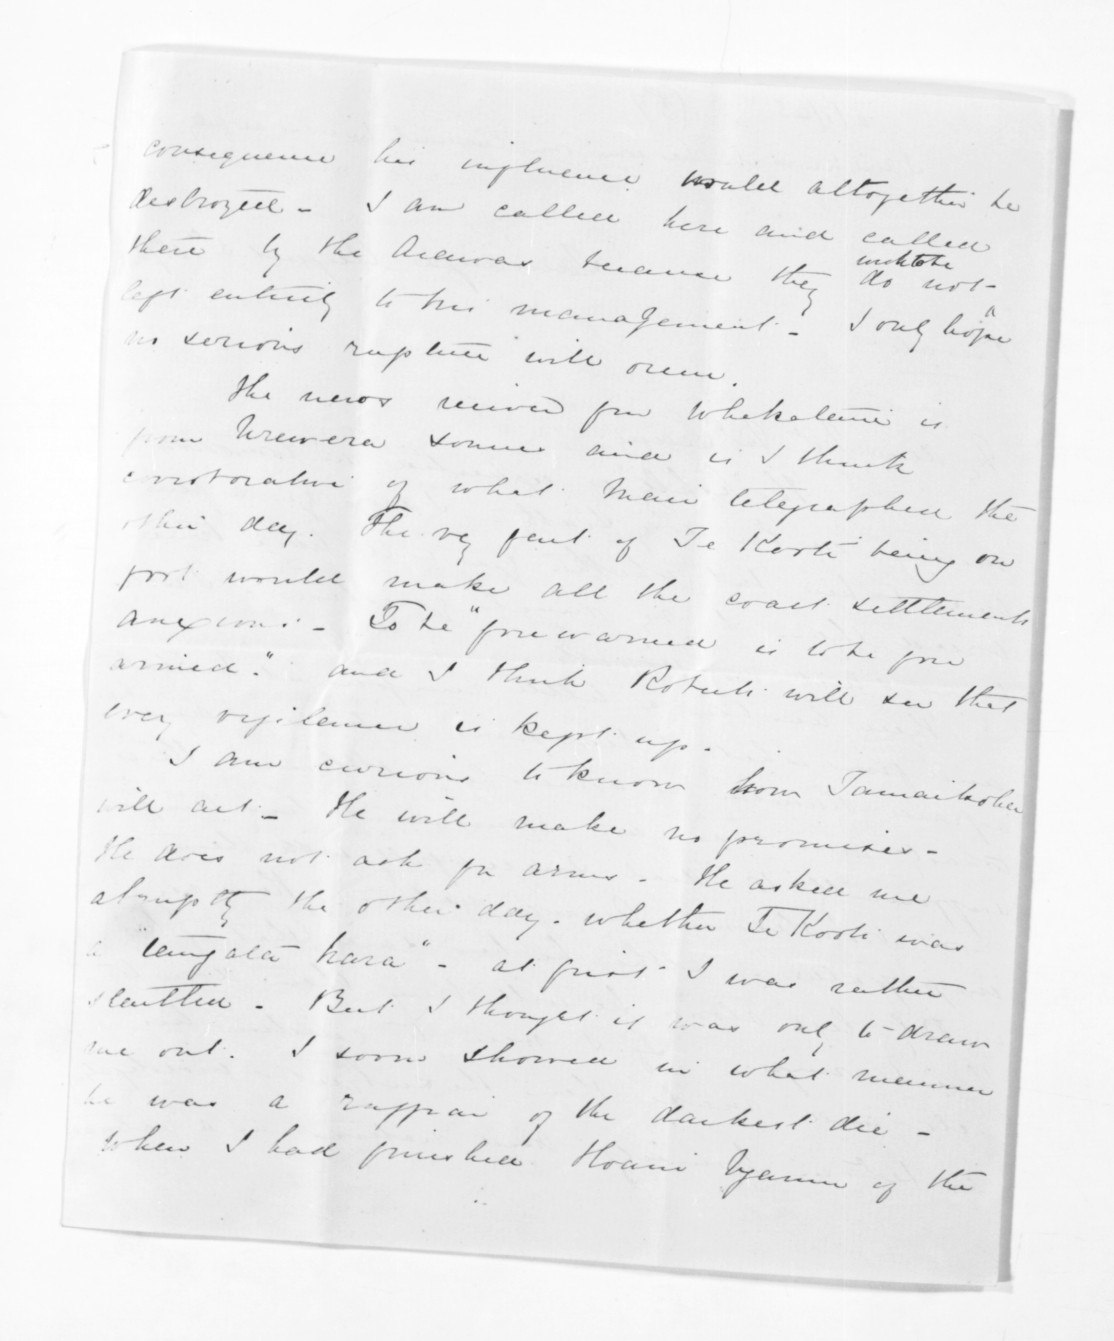 consequence his influence would altogether be
destroyed - I am called here and called
there by the Arawas because they do not
wish to be
left entirely to his management - I only hope
no serious rupture will occur.
The news received from Whakatane is
from Urewera source and is I think
corroborative of what Mair telegraphed the
other day. The very fact of Te Kooti being on
foot would make all the coast settlements
anxious - To be "fore warned is to be fore
armed." and I think Roberts will see that
every vigilance is kept up.
I am curious to know how Tamaikoha
will act - He will make no promises -
He does not ask for arms. He asked me
abruptly the other day. whether Te Kooti was
a "tangata hara" - at first I was rather
startled - But I thought it was only to draw
me out. I soon showed in what manner
he was a ruffian of the darkest die -
When I had finished Hoani Ngamu of the